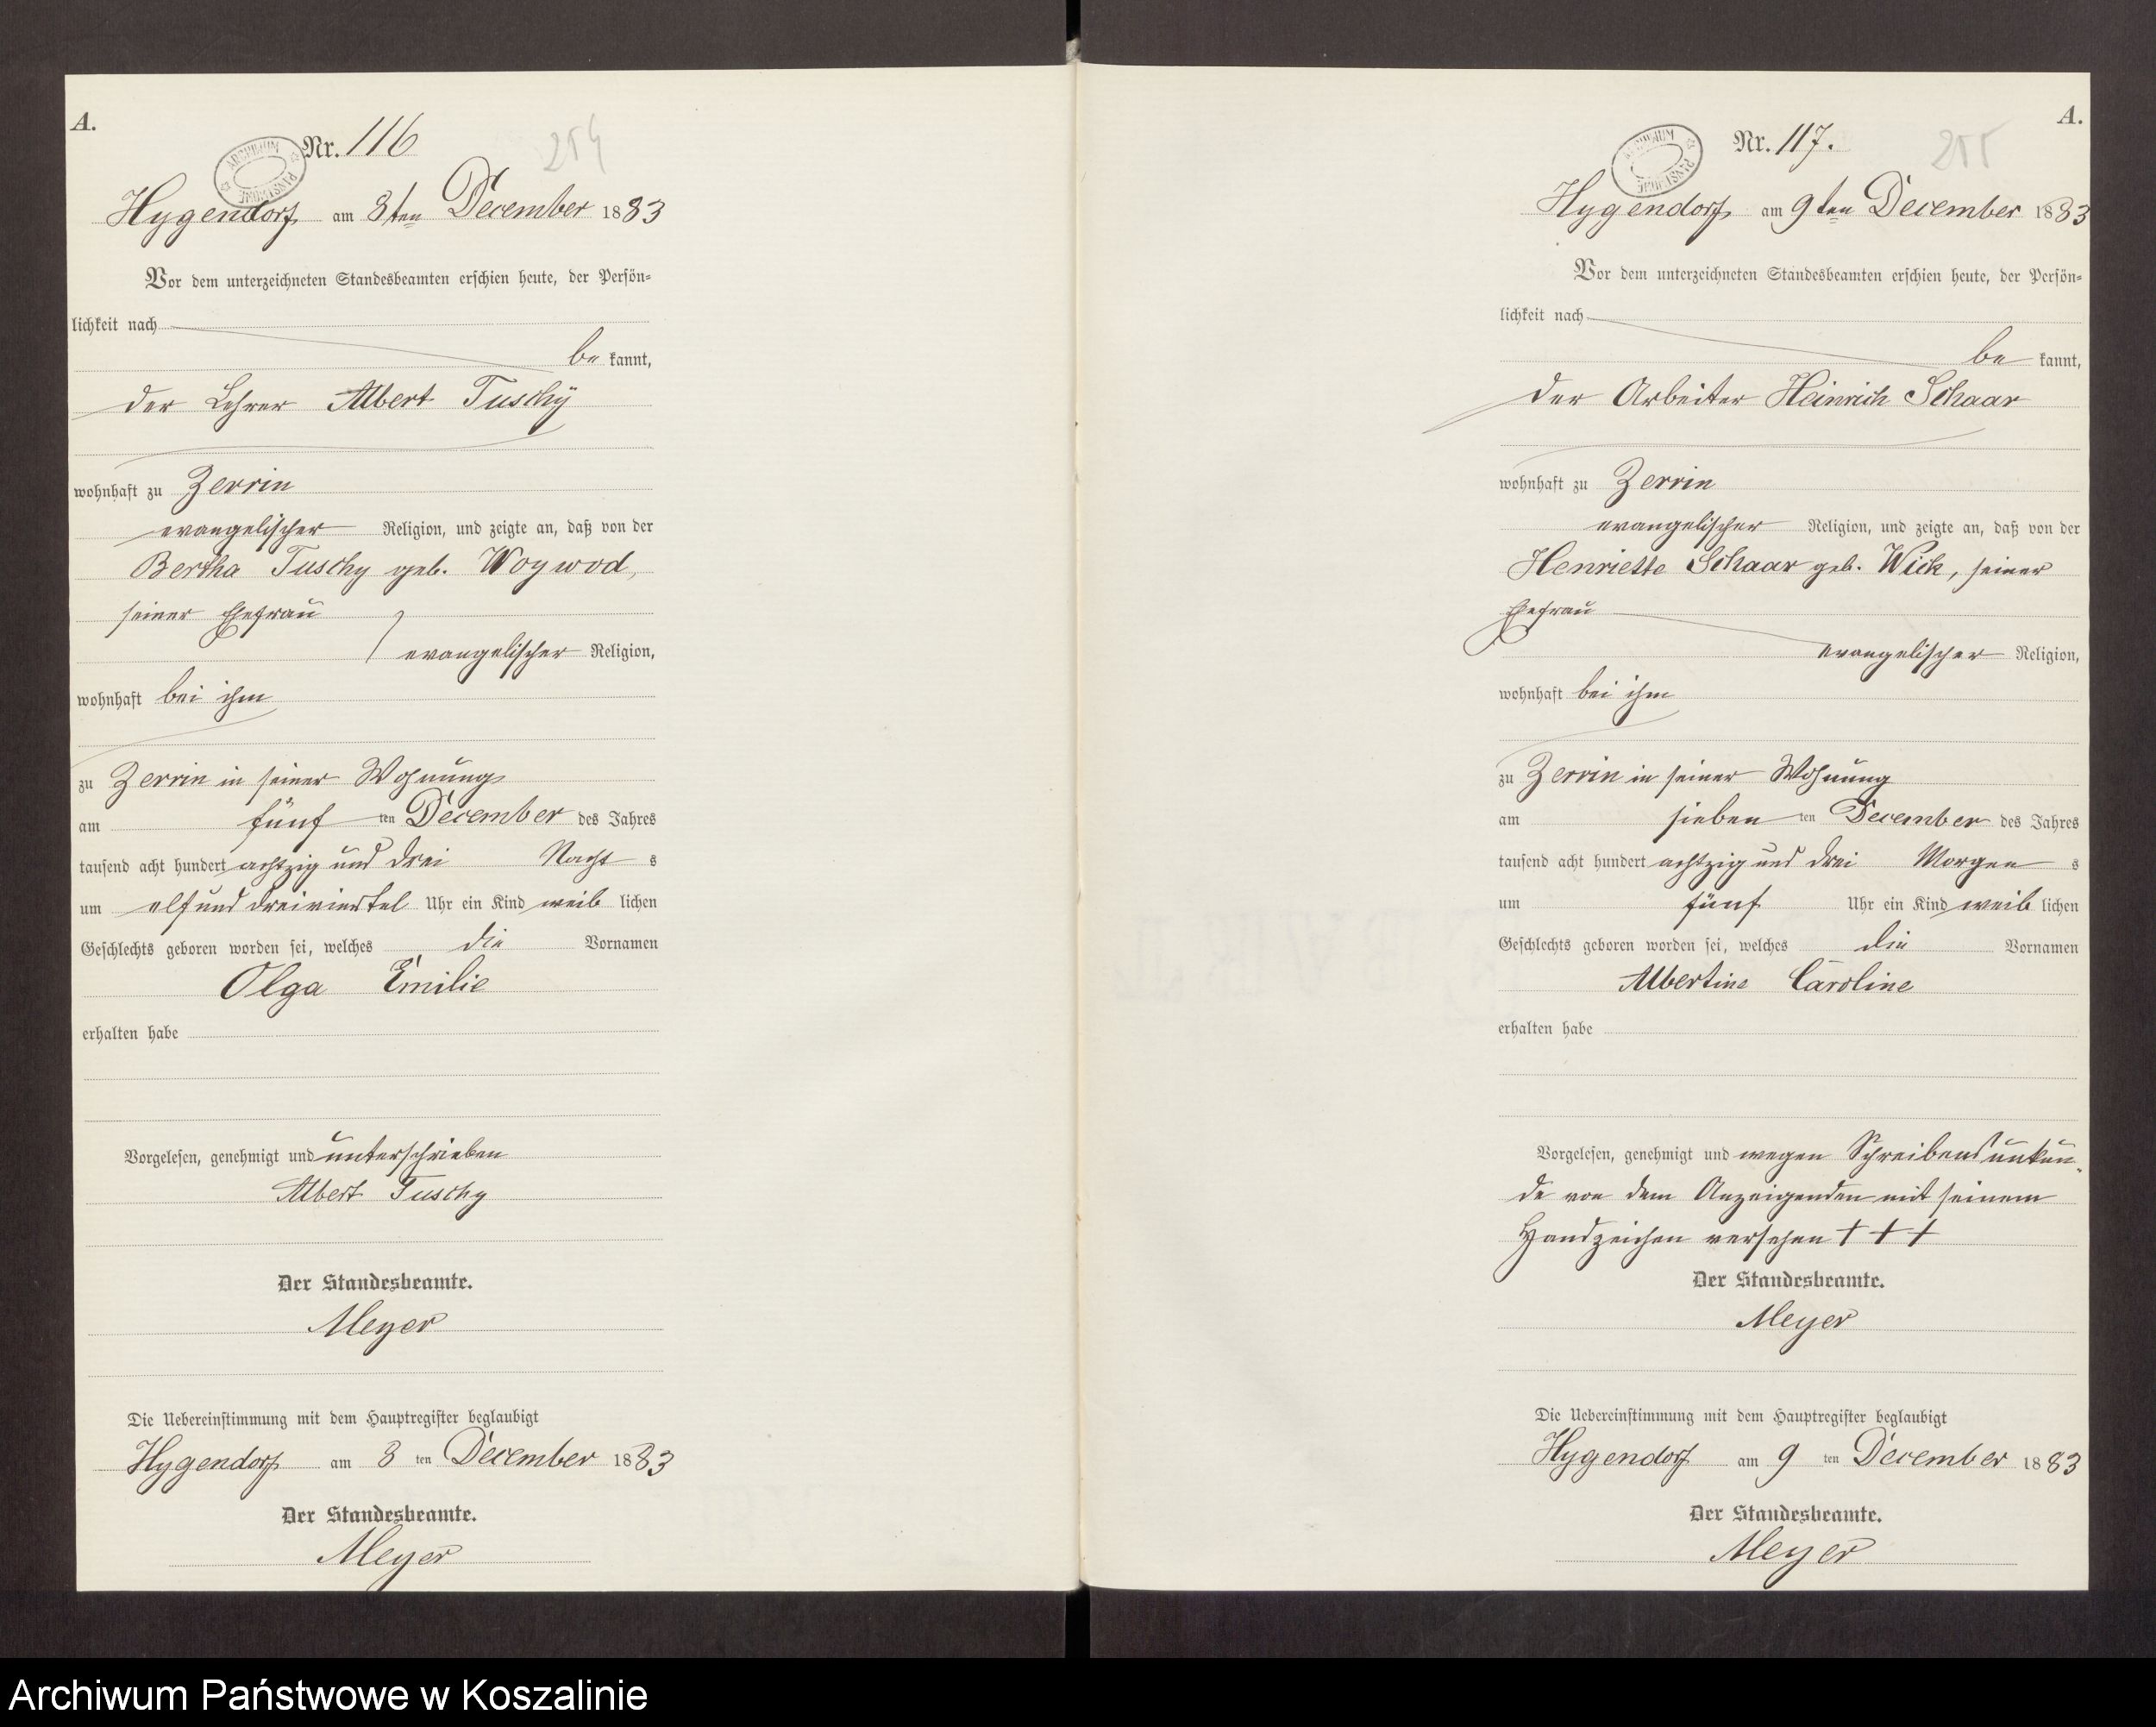 A.
Nr. 116
254
ARCHIWUM PAŃSTWOWE
Hygendorf am 8ten December 1883
Vor dem unterzeichneten Standesbeamten erschien heute, der Persön-
lichkeit nach
be kannt,
der Lehrer Albert Tuschÿ
wohnhaft zu Zerrin
evangelischer Religion, und zeigte an, daß von der
Bertha Tuschy geb. Woywod,
seiner Ehefrau
evangelischer Religion,
wohnhaft bei ihm
zu Zerrin in seiner Wohnung
am fünf ten December des Jahres
tausend acht hundert achtzig und drei Nacht s
um elf und dreiviertel Uhr ein Kind weib lichen
Geschlechts geboren worden sei, welches die Vornamen
Olga Emilie
erhalten habe
Vorgelesen, genehmigt und unterschrieben
Albert Tuschy
Der Standesbeamte.
Meyer
Die Uebereinstimmung mit dem Hauptregister beglaubigt
Hygendorf am 8 ten December 1883
Der Standesbeamte.
Meyer
A.
Nr. 117.
255
ARCHIWUM PAŃSTWOWE
Hygendorf am 9ten December 1883
Vor dem unterzeichneten Standesbeamten erschien heute, der Persön-
lichkeit nach
be kannt,
der Arbeiter Heinrich Schaar
wohnhaft zu Zerrin
evangelischer Religion, und zeigte an, daß von der
Henriette Schaar geb. Wick, seiner
Ehefrau
evangelischer Religion,
wohnhaft bei ihm
zu Zerrin in seiner Wohnung
am sieben ten December des Jahres
tausend acht hundert achtzig und drei Morgen s
um fünf Uhr ein Kind weib lichen
Geschlechts geboren worden sei, welches die Vornamen
Albertine Caroline
erhalten habe
Vorgelesen, genehmigt und wegen Schreibensunkun-
de von dem Anzeigenden mit seinem
Handzeichen versehen + + +
Der Standesbeamte.
Meyer
Die Uebereinstimmung mit dem Hauptregister beglaubigt
Hygendorf am 9 ten December 1883
Der Standesbeamte.
Meyer
Archiwum Państwowe w Koszalinie